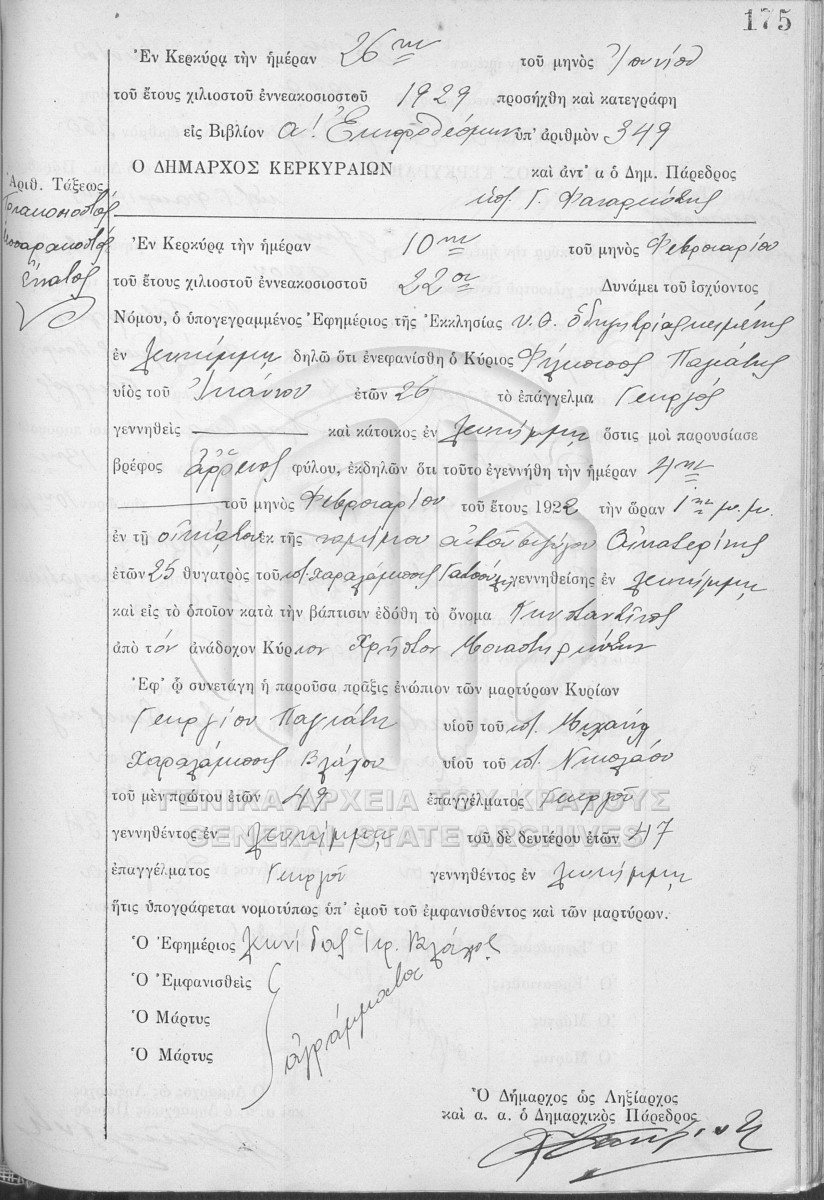 175
Ἐν Κερκύρᾳ τὴν ἡμέραν 26ην τοῦ μηνὸς Ἰουνίου
τοῦ ἔτους χιλιοστοῦ ἐννεακοσιοστοῦ 1929 προσήχθη καὶ κατεγράφη
εἰς Βιβλίον α! Ἐκπροθέσμων ὑπ' ἀριθμὸν 349
Ο ΔΗΜΑΡΧΟΣ ΚΕΡΚΥΡΑΙΩΝ καὶ ἀντ' α ὁ Δημ. Πάρεδρος
Ἀριθ. Τάξεως
Τριακοσιοστός
τεσσαρακοστός
ἔνατος
Ἐν Κερκύρᾳ τὴν ἡμέραν 10ην τοῦ μηνὸς Φεβρουαρίου
τοῦ ἔτους χιλιοστοῦ ἐννεακοσιοστοῦ 22ου Δυνάμει τοῦ ἰσχύοντος
Νόμου, ὁ ὑπογεγραμμένος Ἐφημέριος τῆς Ἐκκλησίας Υ. Θ. Ὁδηγητρίας
ἐν Λευκίμμῃ δηλῶ ὅτι ἐνεφανίσθη ὁ Κύριος Φίλιππος Παγιάτης
υἱὸς τοῦ ἐτῶν 26 τὸ ἐπάγγελμα Γεωργός
γεννηθεὶς καὶ κάτοικος ἐν Λευκίμμῃ ὅστις μοὶ παρουσίασε
βρέφος ἄρρενος φύλου, ἐκδηλῶν ὅτι τοῦτο ἐγεννήθη τὴν ἡμέραν 4ην
τοῦ μηνὸς Φεβρουαρίου τοῦ ἔτους 1922 τὴν ὥραν 1ην μ.μ.
ἐν τῇ οἰκίᾳ του ἐκ τῆς νομίμου αὐτοῦ συζύγου Αἰκατερίνης
ἐτῶν 25 θυγατρὸς τοῦ ποτ. Χαραλάμπους γεννηθείσης ἐν Λευκίμμῃ
καὶ εἰς τὸ ὁποῖον κατὰ τὴν βάπτισιν ἐδόθη τὸ ὄνομα Κωνσταντῖνος
ἀπὸ τὸν ἀνάδοχον Κύριον Χρῆστον Μοναστηριώτην
Ἐφ' ᾧ συνετάγη ἡ παροῦσα πρᾶξις ἐνώπιον τῶν μαρτύρων Κυρίων
Γεωργίου Παγιάτη υἱοῦ τοῦ ποτ. Μιχαήλ
Χαραλάμπους Βλάχου υἱοῦ τοῦ ποτ. Νικολάου
τοῦ μὲν πρώτου ἐτῶν 49 ἐπαγγέλματος Γεωργοῦ
γεννηθέντος ἐν Λευκίμμῃ τοῦ δὲ δευτέρου ἐτῶν 47
ἐπαγγέλματος Γεωργοῦ γεννηθέντος ἐν Λευκίμμῃ
ἥτις ὑπογράφεται νομοτύπως ὑπ' ἐμοῦ τοῦ ἐμφανισθέντος καὶ τῶν μαρτύρων.
Ὁ Ἐφημέριος Λεωνίδας Ἱερ. Βλάχος
Ὁ Ἐμφανισθεὶς
Ὁ Μάρτυς ἀγράμματοι
Ὁ Μάρτυς
Ὁ Δήμαρχος ὡς Ληξίαρχος
καὶ α. α. ὁ Δημαρχικὸς Πάρεδρος
ΓΕΝΙΚΑ ΑΡΧΕΙΑ ΤΟΥ ΚΡΑΤΟΥΣ
GENERAL STATE ARCHIVES